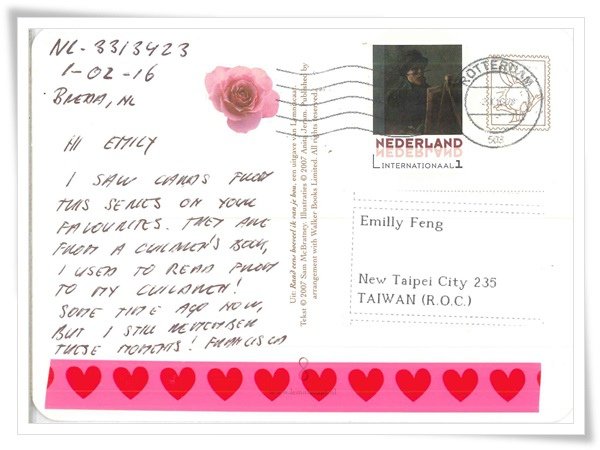 NL-3313423
1-02-16
BREDA, NL
HI EMILY
I SAW CARDS FROM
THIS SERIES ON YOUR
FAVOURITES. THEY ARE
FROM A CHILDREN'S BOOK,
I USED TO READ FROM
TO MY CHILDREN!
SOME TIME AGO NOW,
BUT I STILL REMEMBER
THESE MOMENTS! FRANCISCA
Uit: Raad eens hoeveel ik van je hou, een uitgave van Lemniscaat.
Tekst © 2007 Sam McBratney, Illustraties © 2007 Anita Jeram. Published by
arrangement with Walker Books Limited. All rights reserved.
NEDERLAND
NEDERLAND
INTERNATIONAAL 1
ROTTERDAM
Emilly Feng
New Taipei City 235
TAIWAN (R.O.C.)